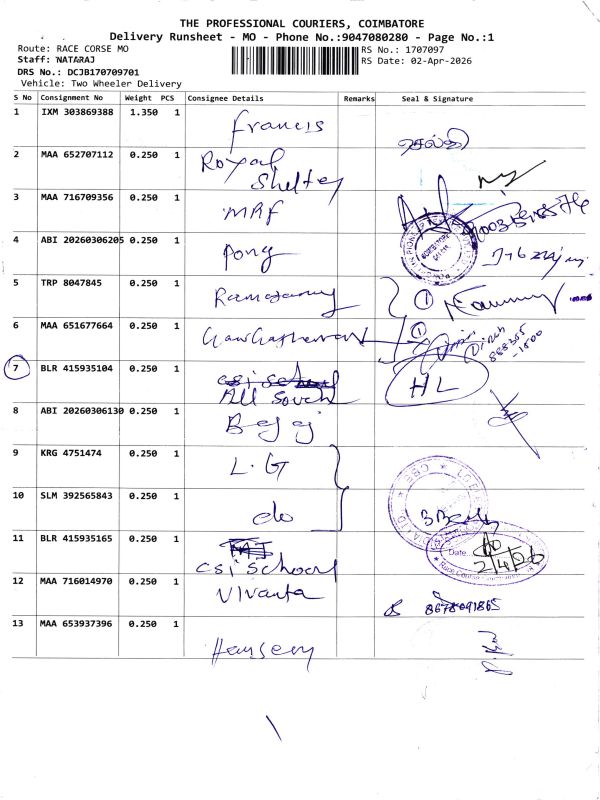 THE PROFESSIONAL COURIERS, COIMBATORE
Delivery Runsheet - MO - Phone No.:9047080280 - Page No.:1
Route: RACE CORSE MO
RS No.: 1707097
Staff: NATARAJ
RS Date: 02-Apr-2026
DRS No.: DCJB170709701
Vehicle: Two Wheeler Delivery
S No Consignment No Weight PCS Consignee Details Remarks Seal & Signature
1 IXM 303869388 1.350 1 Francis செல்வி
2 MAA 652707112 0.250 1 Royal
Shelter
3 MAA 716709356 0.250 1 MRF
4 ABI 20260306205 0.250 1 Pong
5 TRP 8047845 0.250 1 ①
6 MAA 651677664 0.250 1 ①
7 BLR 415935104 0.250 1 csi school HL
All Souch
8 ABI 20260306130 0.250 1 Bajaj
9 KRG 4751474 0.250 1 L.G
10 SLM 392565843 0.250 1 do
11 BLR 415935165 0.250 1 csi school
Date 2/4/26
12 MAA 716014970 0.250 1 Vivanta 8678091865
13 MAA 653937396 0.250 1